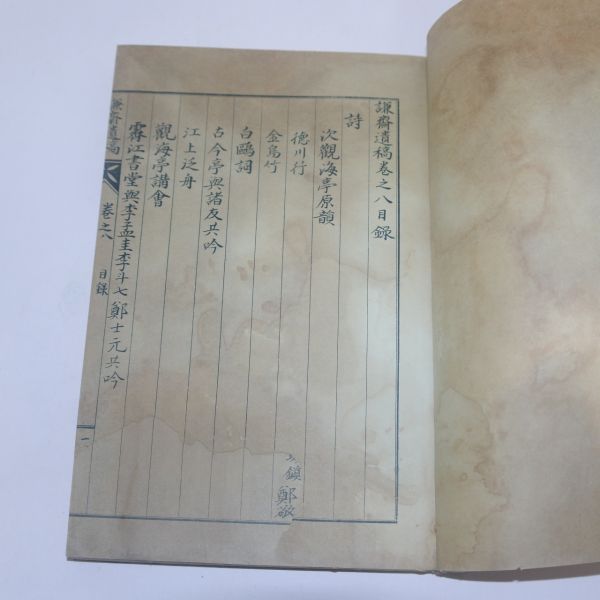 謙齋遺稿卷之八目錄
詩
次觀海亭原韻
德川行
金烏竹
白鷗詞
古今亭與諸友共吟
江上泛舟
觀海亭講會
霽江書堂與李孟圭李斗七鄭士元共吟
謙齋遺稿
卷之八
目錄
一
鎭
鄭敬